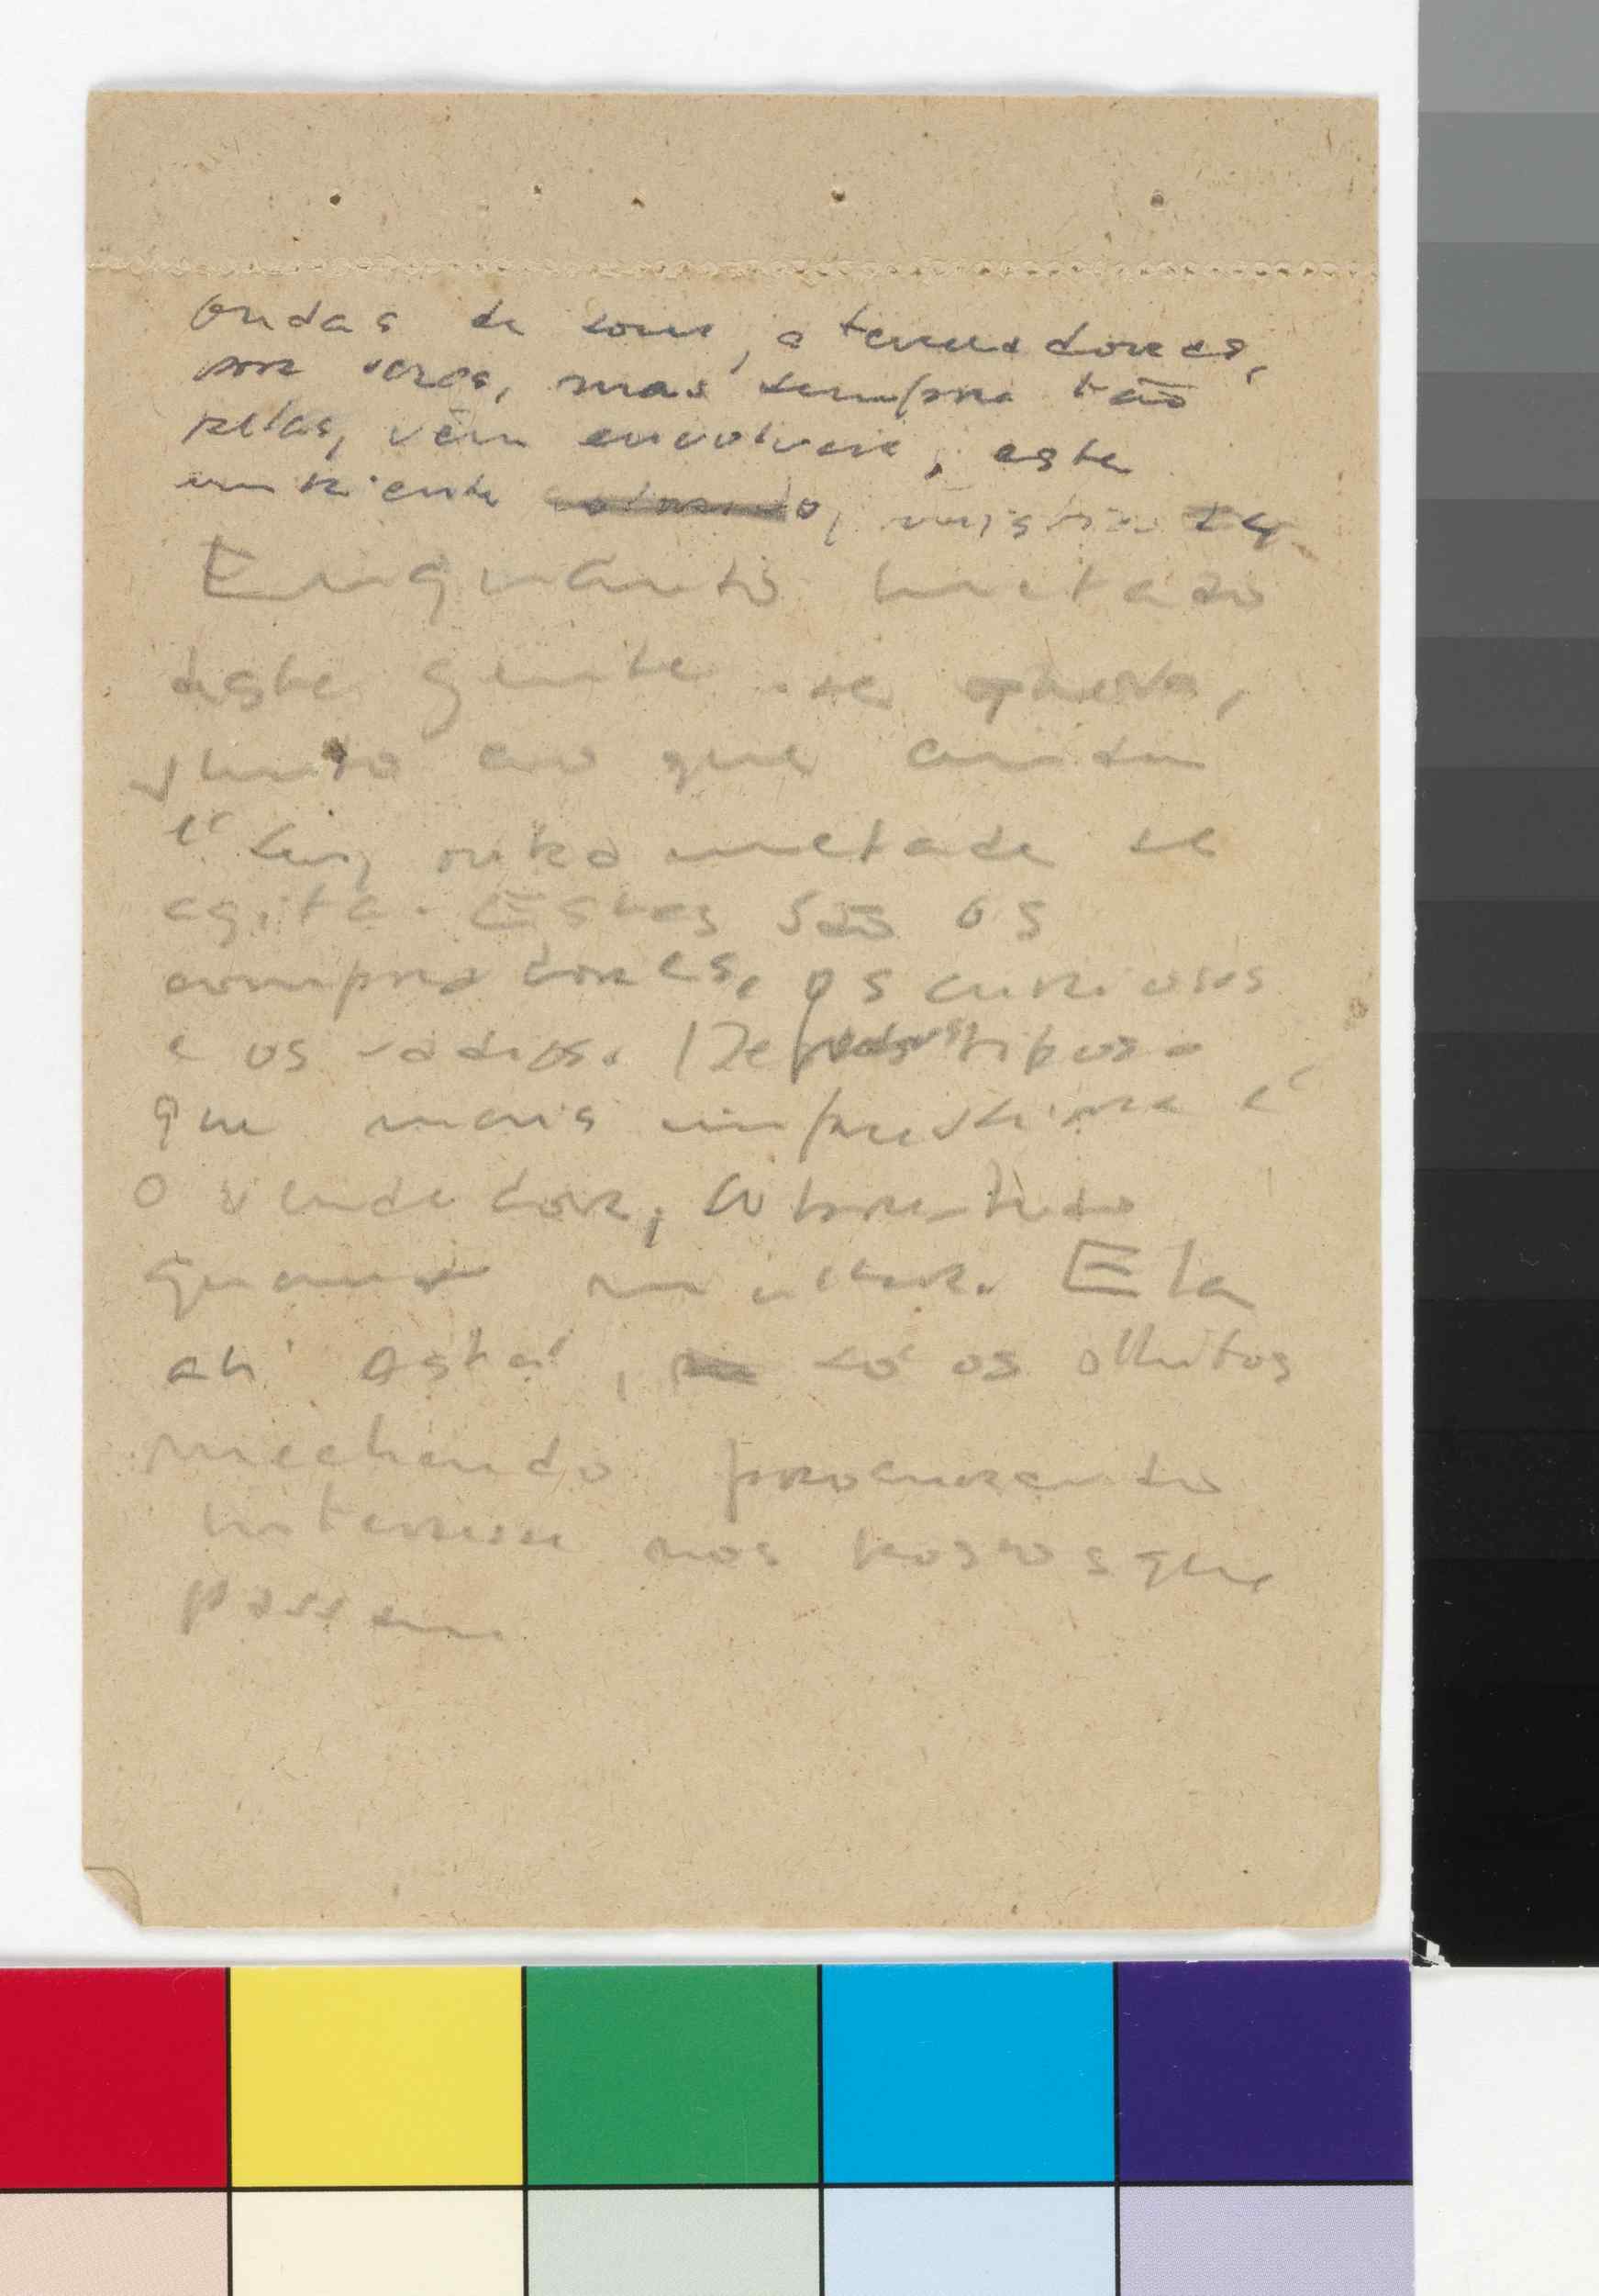 ondas de sons, atenuadores,
por vezes, mas sempre tão
retas, vêm envolver, este
ambiente
Enquanto metade
desta gente se aquieta,
junto ao que ainda
é seu, outra metade se
agita. Estes são os
compradores, os curiosos
e os vadios. De tipos o
que mais impressiona é
o vendedor, sobretudo
quando mulher. Ela
ahi está, só os olhitos
mechendo procurando
interesse nos rostos que
passam